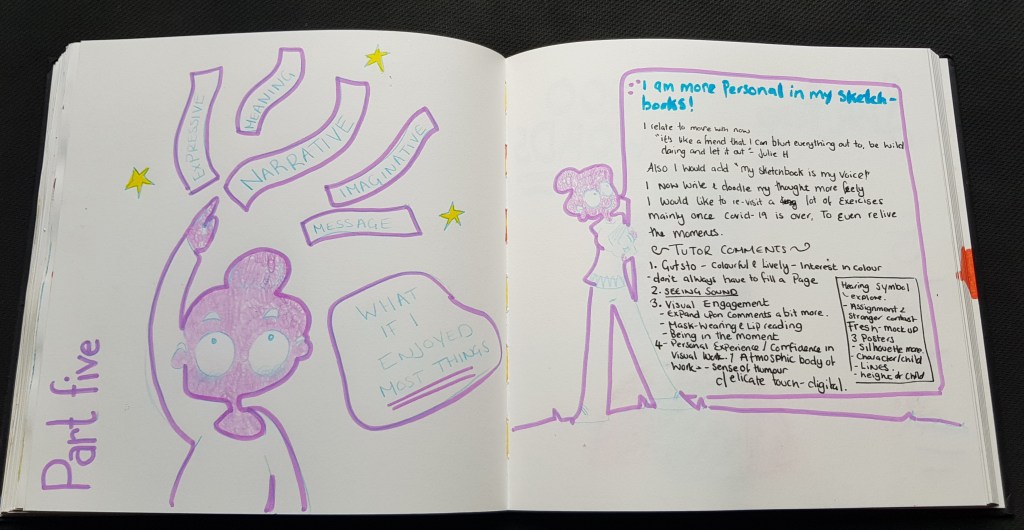 Part five
EXPRESSIVE
MEANING
NARRATIVE
IMAGINATIVE
MESSAGE
WHAT
IF I
ENJOYED
MOST THINGS
I am more Personal in my sketch-
books!
I relate to more with now
"it's like a friend that I can blurt everything out to, be wild
daring and let it out" - Julie H
Also I would add "my sketchbook is my voice!"
I now write & doodle my thought more freely
I would like to re-visit a lot of Exercises
mainly once Covid-19 is over. To even relive
the moments.
TUTOR COMMENTS
1. Gutsto - Colourful & Lively - Interest in colour
- don't always have to fill a Page
2. SEEING SOUND
3. Visual Engagement
- Expand upon Comments a bit more.
- Mask-Wearing & Lip reading
- Being in the moment
4- Personal Experience / Confidence in
Visual Work. / Atmosphic body of
Work - - Sense of Humour
delicate touch - digital.
Hearing Symbol
- explore.
- Assignment 2
Stranger contrast
Fresh - mock up
3 Posters
- Silhouette more.
- Character/child
- Lines.
- height of child